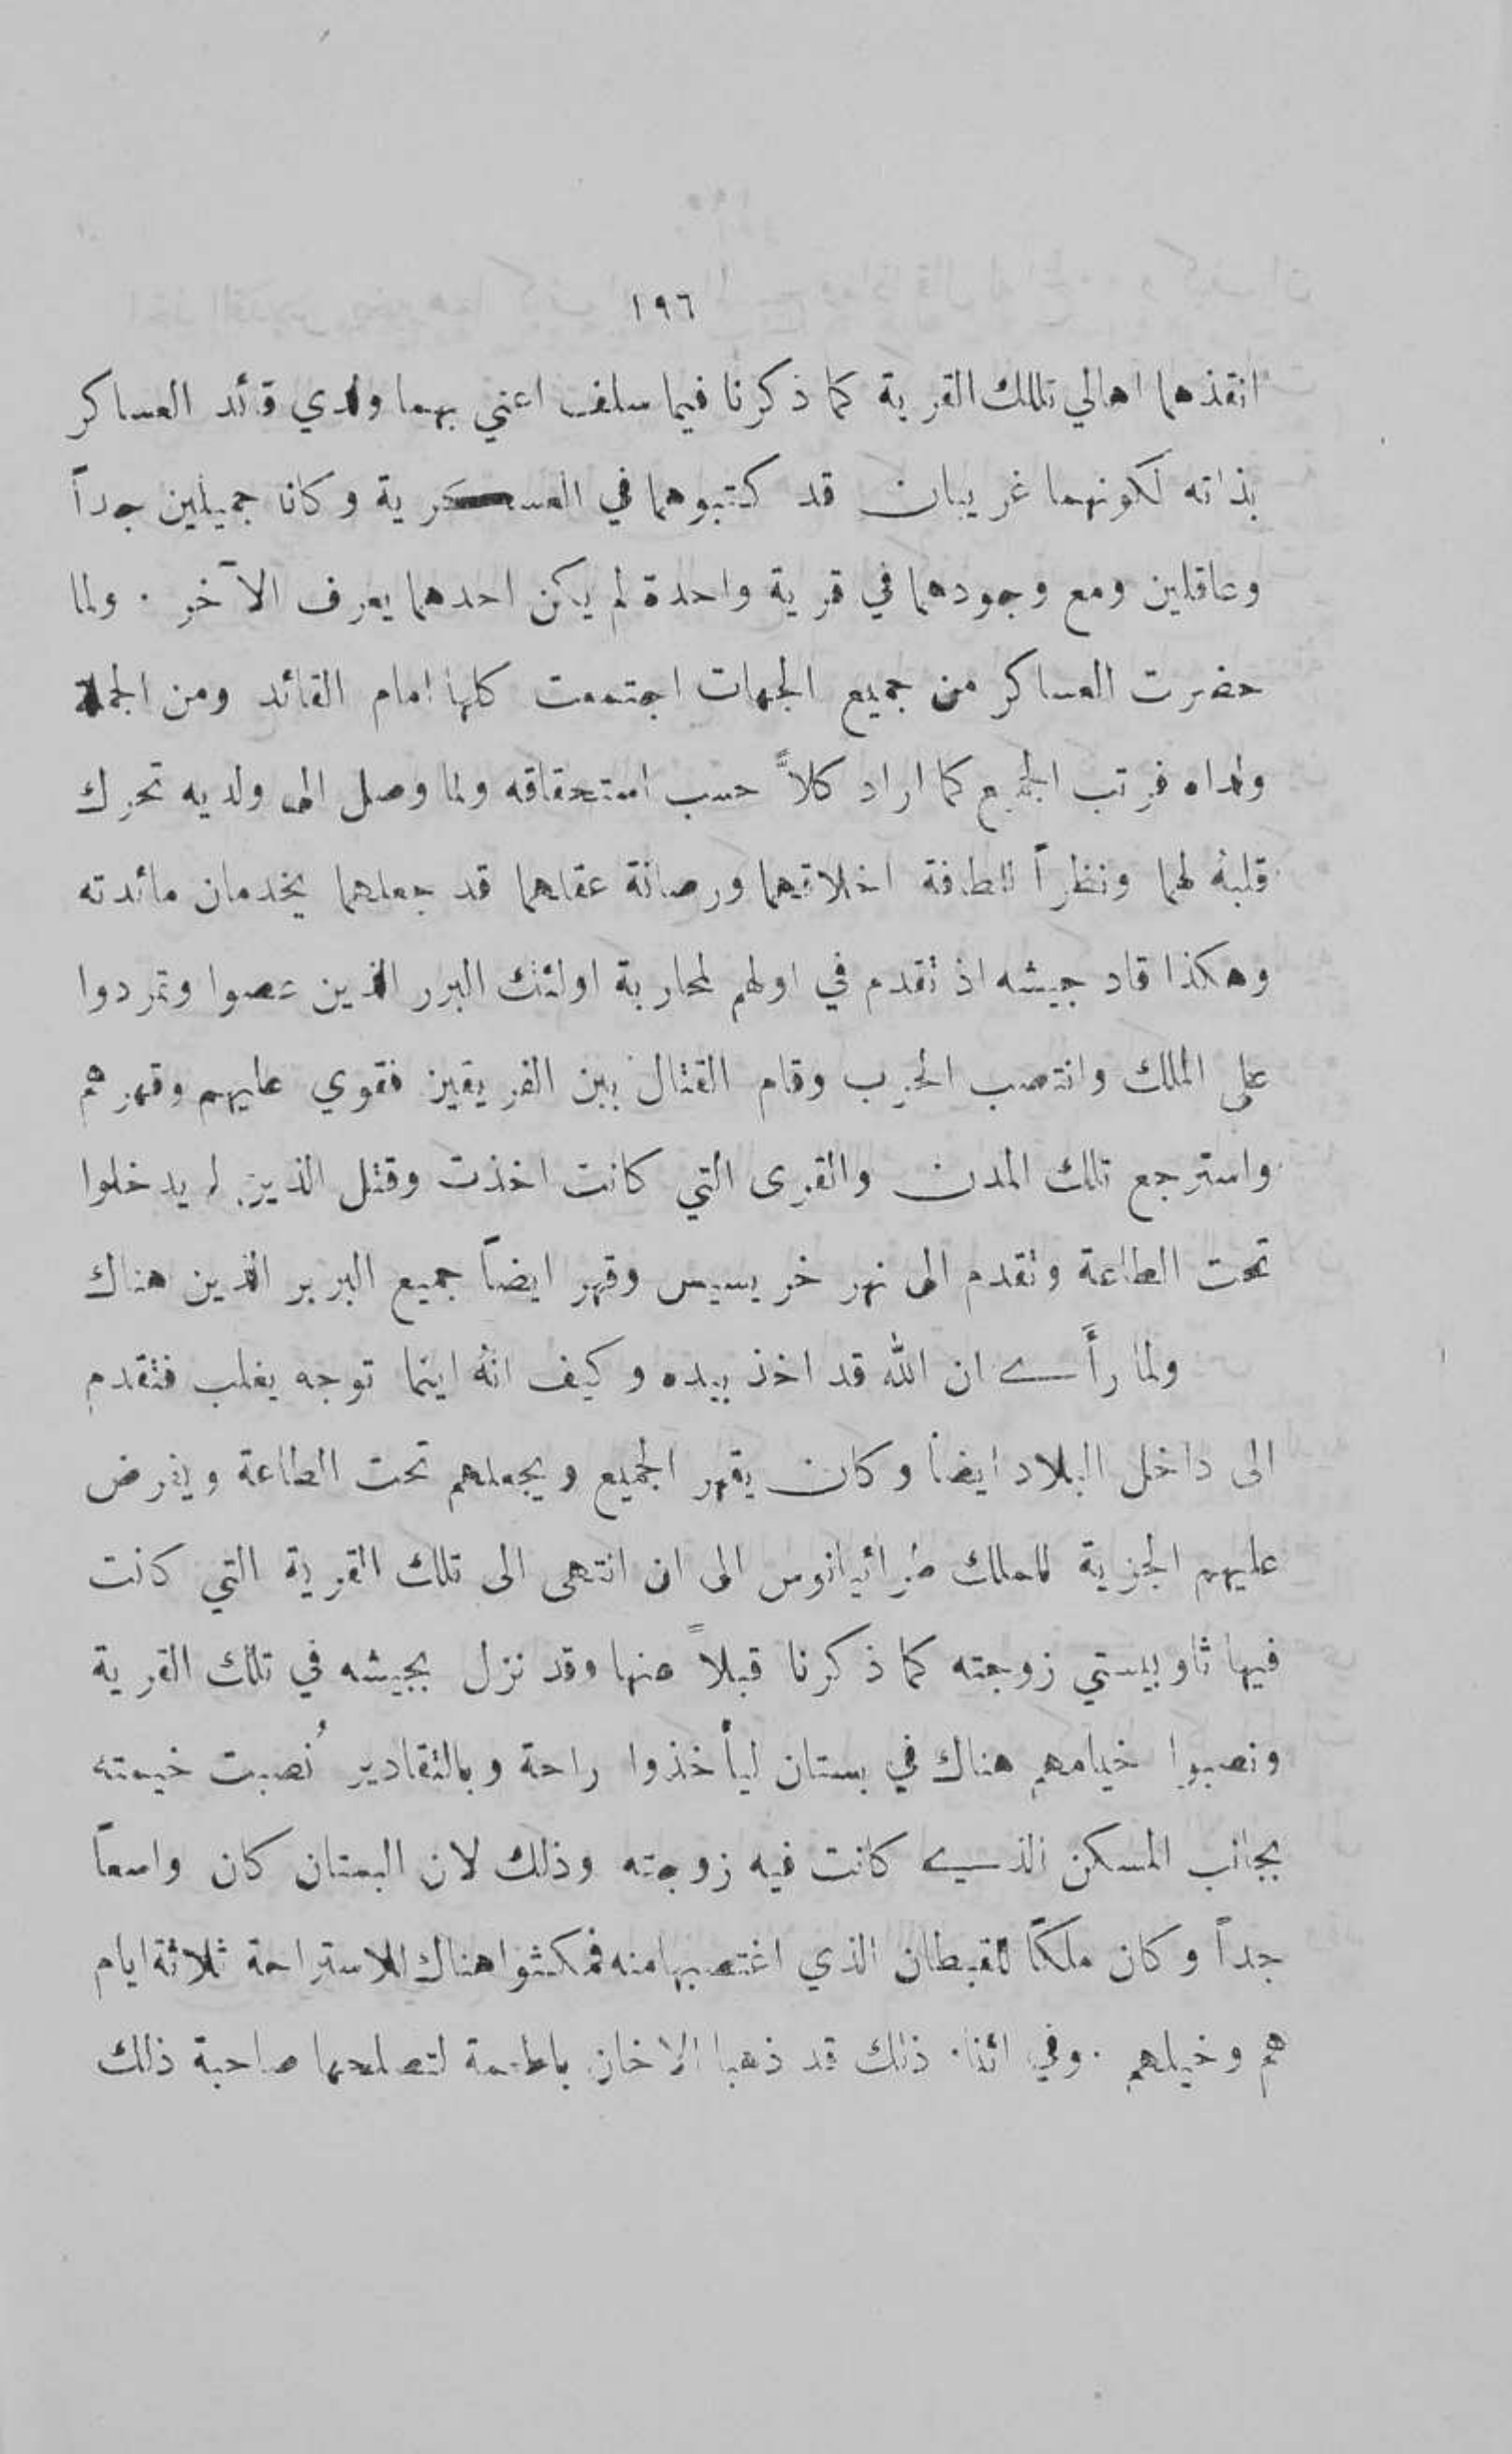 ١٩٦
انقذهما اهالي تلك القرية كما ذكرنا فيما سلف اعني بهما ولدي قائد العساكر
بذاته لكونهما غريبان قد كتبوهما في العسكرية وكانا جميلين جداً
وعاقلين ومع وجودهما في قرية واحدة لم يكن احدهما يعرف الآخر . ولما
حضرت العساكر من جميع الجهات اجتمعت كلها امام القائد ومن الجملة
ولداه فرتب الجميع كما اراد كلاً حسب استحقاقه ولما وصل الى ولديه تحرك
قلبهُ لهما ونظراً للطافة اخلاقهما ورصانة عقلهما قد جعلهما يخدمان مائدته
وهكذا قاد جيشه اذ تقدم في اولهم لمحاربة اولئك البرر الذين عصوا وتمردوا
على الملك وانتصب الحرب وقام القتال بين الفريقين فقوي عليهم وقهرهم
واسترجع تلك المدن والقرى التي كانت اخذت وقتل الذين لم يدخلوا
تحت الطاعة وتقدم الى نهر خريسيس وقهر ايضاً جميع البربر الذين هناك
ولما رأَى ان الله قد اخذ بيده وكيف انهُ اينما توجه يغلب فتقدم
الى داخل البلاد ايضاً وكان يقهر الجميع ويجعلهم تحت الطاعة ويفرض
عليهم الجزية للملك طرائيانوس الى ان انتهى الى تلك القرية التي كانت
فيها ثاوبيستي زوجته كما ذكرنا قبلاً عنها وقد نزل بجيشه في تلك القرية
ونصبوا خيامهم هناك في بستان ليأخذوا راحة وبالتقادير نُصبت خيمته
بجانب المسكن الذي كانت فيه زوجته وذلك لان البستان كان واسعاً
جداً وكان ملكاً للقبطان الذي اغتصبها منه فمكثوا هناك للاستراحة ثلاثة ايام
هم وخيلهم . وفي اثناء ذلك قد ذهبا الاخان باطعمة لتصلحها صاحبة ذلك